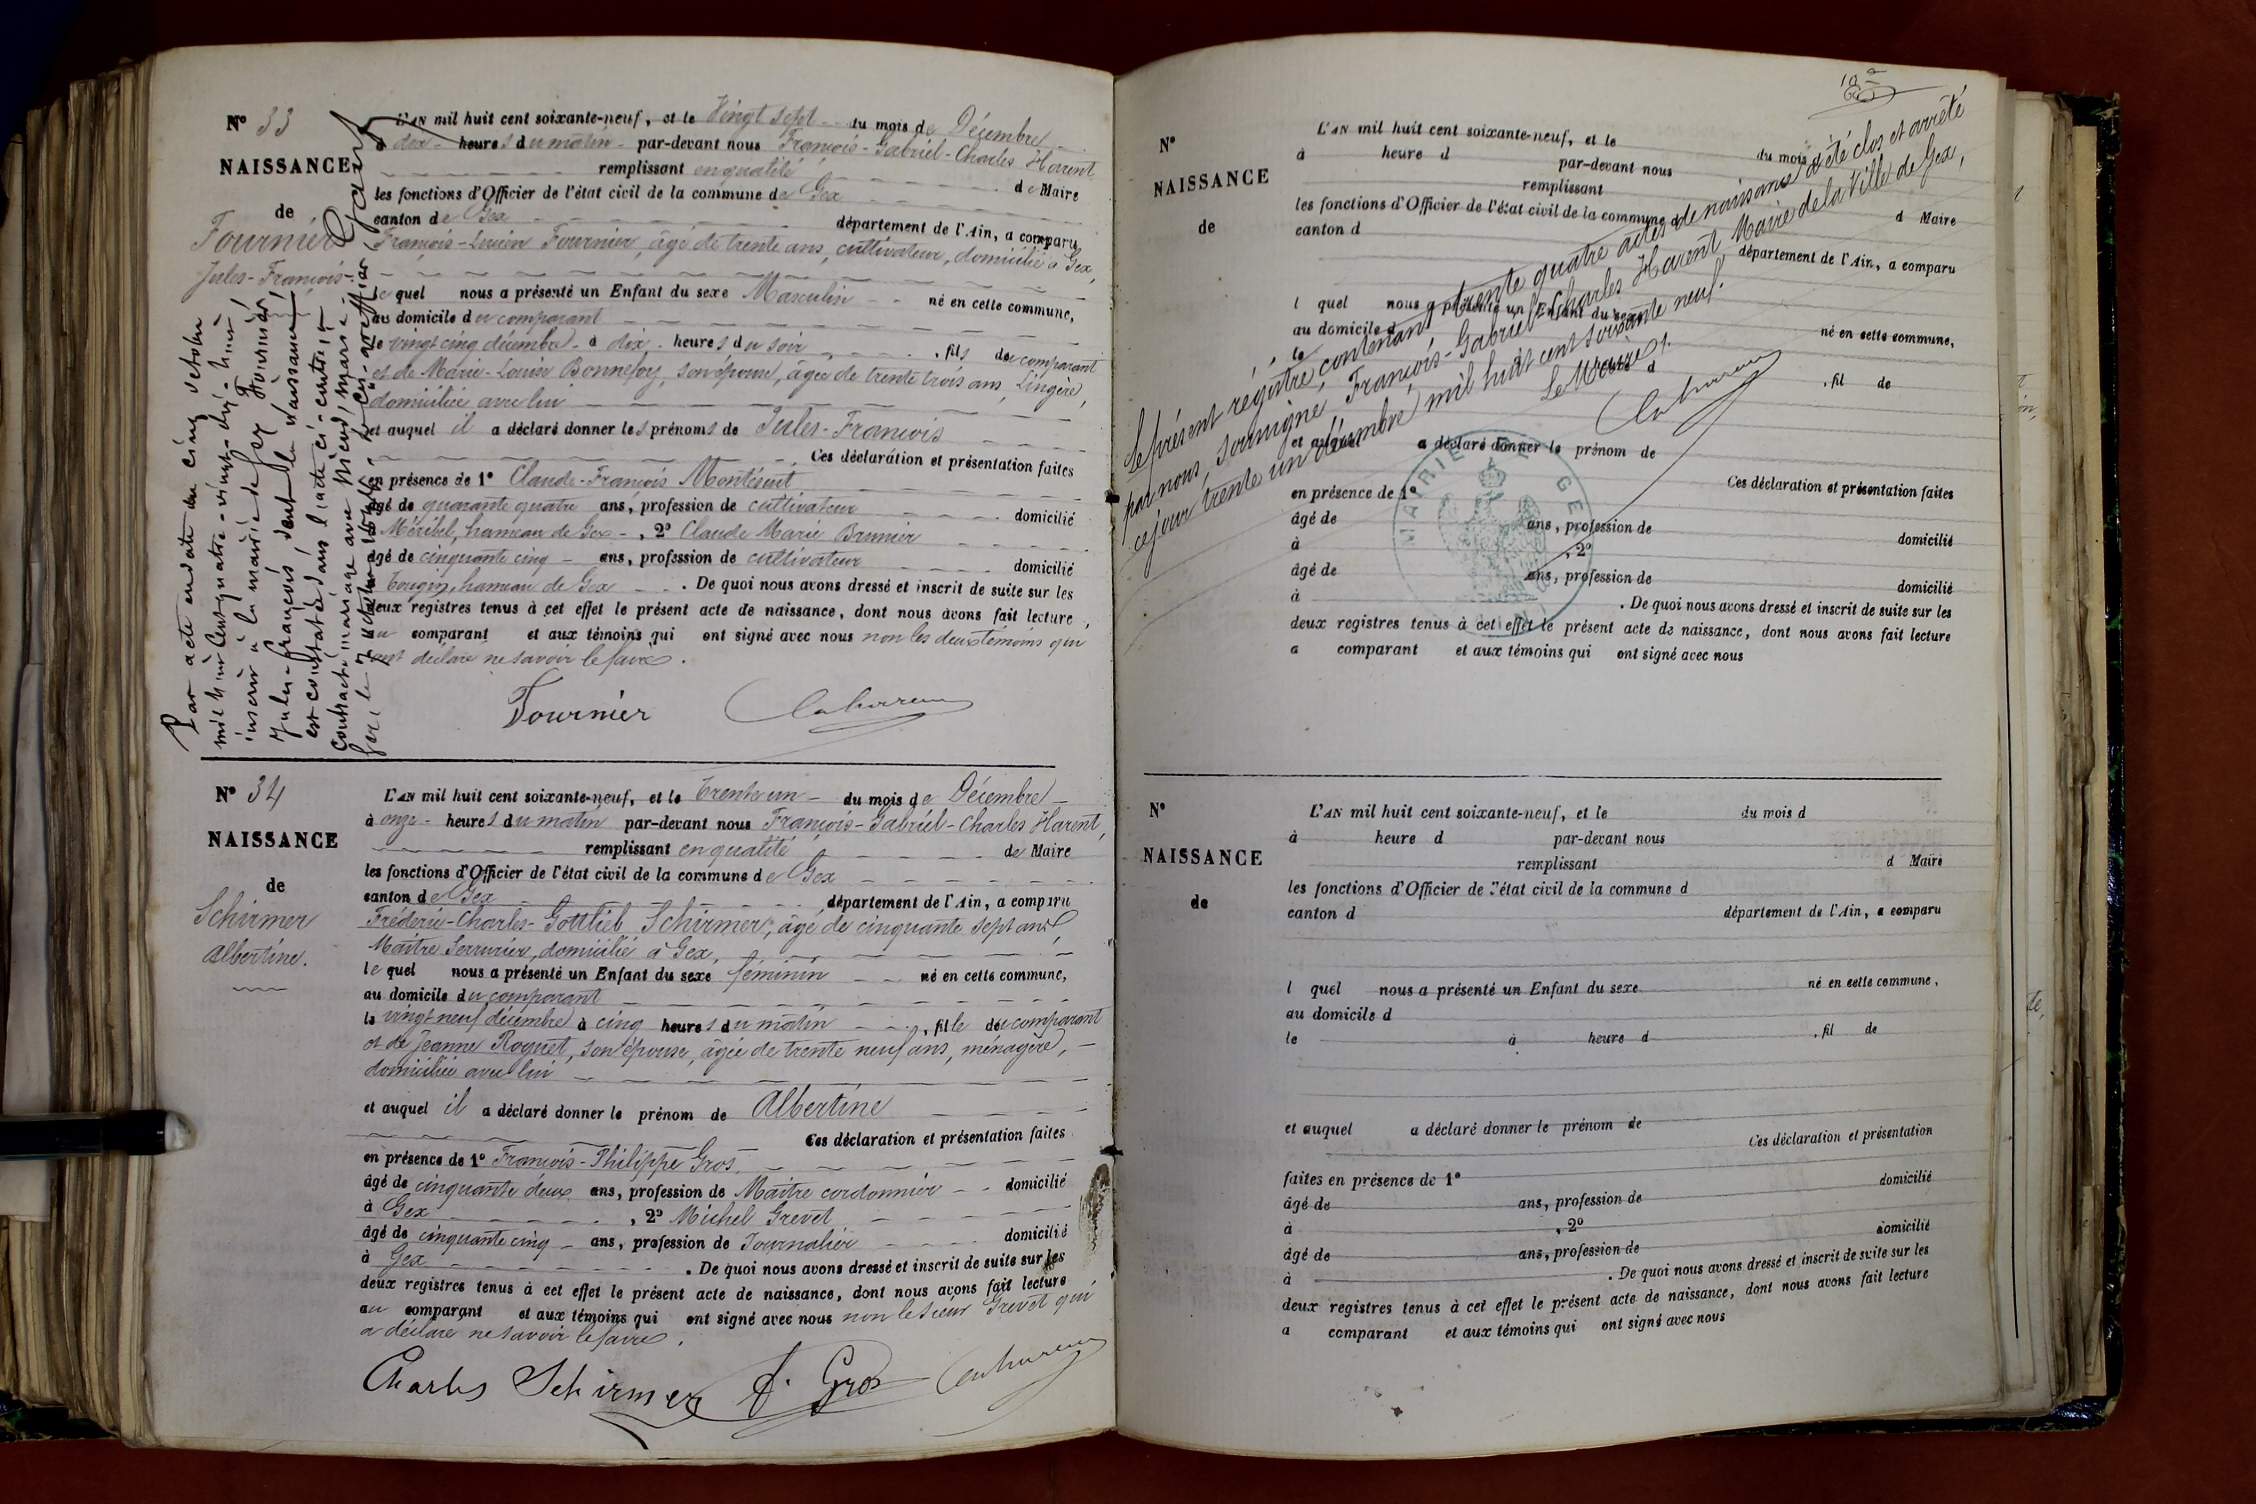 Nº 33
NAISSANCE
de
Fournier
Jules-François
L'AN mil huit cent soixante-neuf, et le Vingt sept du mois de Décembre
à dix heures du matin par-devant nous François-Gabriel-Charles Harent
remplissant en qualité de Maire
les fonctions d'Officier de l'état civil de la commune de Gex
canton de Gex département de l'Ain, a comparu
François-Lucien Fournier, âgé de trente ans, cultivateur, domicilié à Gex,
le quel nous a présenté un Enfant du sexe Masculin né en cette commune,
au domicile du comparant
le vingt cinq décembre à dix heures du soir, fils du comparant
et de Marie-Louise Bonnefoy, son épouse, âgée de trente trois ans, Lingère,
domiciliée avec lui
et auquel il a déclaré donner les prénoms de Jules-François
Ces déclaration et présentation faites
en présence de 1º Claude-François
âgé de quarante quatre ans, profession de cultivateur domicilié
Méribel, hameau de Gex, 2º Claude Marie Brunier
âgé de cinquante cinq ans, profession de cultivateur domicilié
Tougin, hameau de Gex. De quoi nous avons dressé et inscrit de suite sur les
deux registres tenus à cet effet le présent acte de naissance, dont nous avons fait lecture,
au comparant et aux témoins qui ont signé avec nous non les deux témoins qui
ont déclaré ne savoir le faire.
Fournier
Par acte en date du cinq octobre
mil huit cent quatre-vingt-dix-huit,
inscrit à la mairie de Gex, Fournier
Jules-François dont la naissance
est constatée dans l'acte ci-contre, a
contracté mariage avec
Gex, le 7 octobre 1898
Nº 34
NAISSANCE
de
Schirmer
Albertine.
L'AN mil huit cent soixante-neuf, et le Trente un du mois de Décembre
à onze heures du matin par-devant nous François-Gabriel-Charles Harent,
remplissant en qualité de Maire
les fonctions d'Officier de l'état civil de la commune de Gex
canton de Gex département de l'Ain, a comparu
Fréderic-Charles-Gottlieb Schirmer, âgé de cinquante sept ans
Maître Serrurier, domicilié à Gex,
le quel nous a présenté un Enfant du sexe féminin né en cette commune,
au domicile du comparant
le vingt neuf décembre à cinq heures du matin, fille du comparant
et de Jeanne Roquet, son épouse, âgée de trente neuf ans, ménagère,
domiciliée avec lui
et auquel il a déclaré donner le prénom de Albertine
Ces déclaration et présentation faites
en présence de 1º François-Philippe Gros
âgé de cinquante deux ans, profession de Maître cordonnier domicilié
à Gex, 2º Michel Grevet
âgé de cinquante cinq ans, profession de Journalier domicilié
à Gex. De quoi nous avons dressé et inscrit de suite sur les
deux registres tenus à cet effet le présent acte de naissance, dont nous avons fait lecture
au comparant et aux témoins qui ont signé avec nous non le sieur Grevet qui
a déclaré ne savoir le faire.
Charles Schirmer F. Gros
Nº
NAISSANCE
de
L'AN mil huit cent soixante-neuf, et le du mois d
à heure d par-devant nous
remplissant d Maire
les fonctions d'Officier de l'état civil de la commune d
canton d département de l'Ain, a comparu
l quel nous a présenté un Enfant du sexe né en cette commune,
au domicile d
le heure d, fil de
et auquel a déclaré donner le prénom de
Ces déclaration et présentation faites
en présence de 1º
âgé de ans, profession de domicilié
à, 2º
âgé de ans, profession de domicilié
à. De quoi nous avons dressé et inscrit de suite sur les
deux registres tenus à cet effet le présent acte de naissance, dont nous avons fait lecture
a comparant et aux témoins qui ont signé avec nous
Le présent régistre, contenant trente quatre actes de naissance a été clos et arrêté
par nous, soussigné, François-Gabriel-Charles Harent, Maire de la Ville de Gex,
ce jour trente un décembre mil huit cent soixante neuf.
Le Maire,
MAIRIE DE GEX
Nº
NAISSANCE
de
L'AN mil huit cent soixante-neuf, et le du mois d
à heure d par-devant nous
remplissant d Maire
les fonctions d'Officier de l'état civil de la commune d
canton d département de l'Ain, a comparu
l quel nous a présenté un Enfant du sexe né en cette commune,
au domicile d
le à heure d, fil de
et auquel a déclaré donner le prénom de
Ces déclaration et présentation
faites en présence de 1º domicilié
âgé de ans, profession de
à, 2º domicilié
âgé de ans, profession de
à. De quoi nous avons dressé et inscrit de suite sur les
deux registres tenus à cet effet le présent acte de naissance, dont nous avons fait lecture
a comparant et aux témoins qui ont signé avec nous